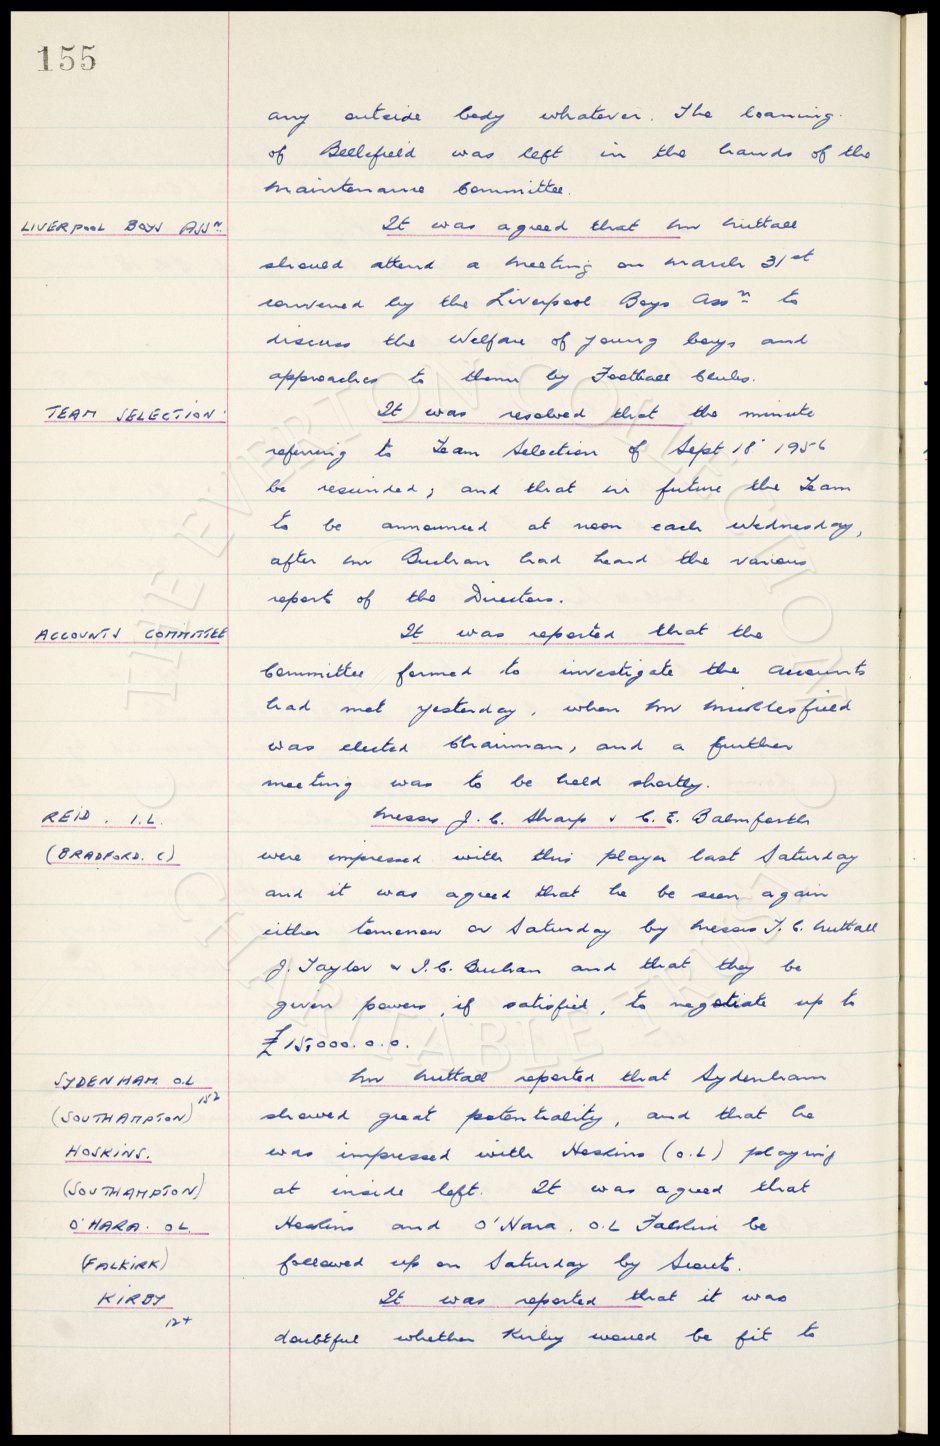 155
any outside body whatever. The loaning
of Bellefield was left in the hands of the
Maintenance Committee.
LIVERPOOL BOYS ASSN. It was agreed that Mr Nuttall
should attend a meeting on March 31st
convened by the Liverpool Boys Assn to
discuss the Welfare of young boys and
approaches to them by Football Clubs.
TEAM SELECTION. It was resolved that the minute
referring to Team Selection of Sept 18 1956
be rescinded; and that in future the Team
to be announced at noon each Wednesday,
after Mr Buchan had heard the various
report of the Directors.
ACCOUNTS COMMITTEE It was reported that the
Committee formed to investigate the accounts
had met yesterday, when Mr Micklesfield
was elected Chairman, and a further
meeting was to be held shortly.
REID. I.L. Messrs J.C. Sharp & C.E. Balmforth
(BRADFORD. C) were impressed with this player last Saturday
and it was agreed that he be seen again
either tomorrow or Saturday by Messrs T.C. Nuttall
J. Taylor & I.C. Buchan and that they be
given powers, if satisfied, to negotiate up to
£15,000.0.0.
SYDENHAM. O.L Mr Nuttall reported that Sydenham
(SOUTHAMPTON) 152 showed great potentiality, and that he
HOSKINS. was impressed with Hoskins (O.L) playing
(SOUTHAMPTON) at inside left. It was agreed that
O'HARA. OL. Hoskins and O'Hara. O.L Falkirk be
(FALKIRK) followed up on Saturday by Scouts.
KIRBY It was reported that it was
124 doubtful whether Kirby would be fit to
THE EVERTON COLLECTION
CHARITABLE TRUST